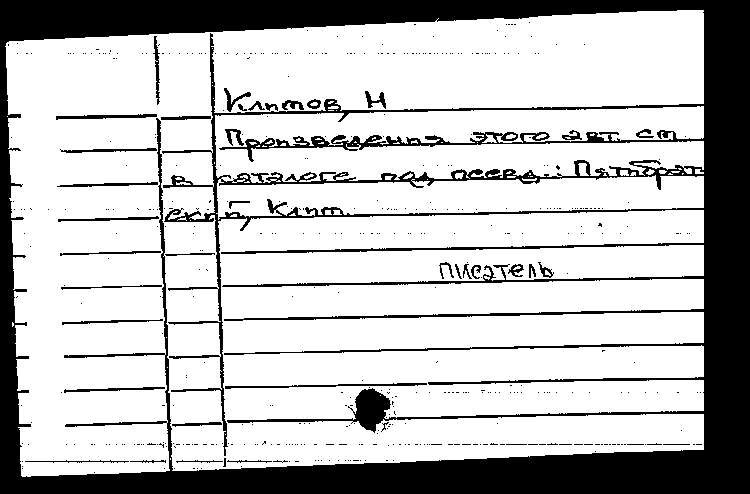 Климов, Н
Произведения этого авт. см
в каталоге под псевд.: Пятибрат
ский, Клим.
писатель